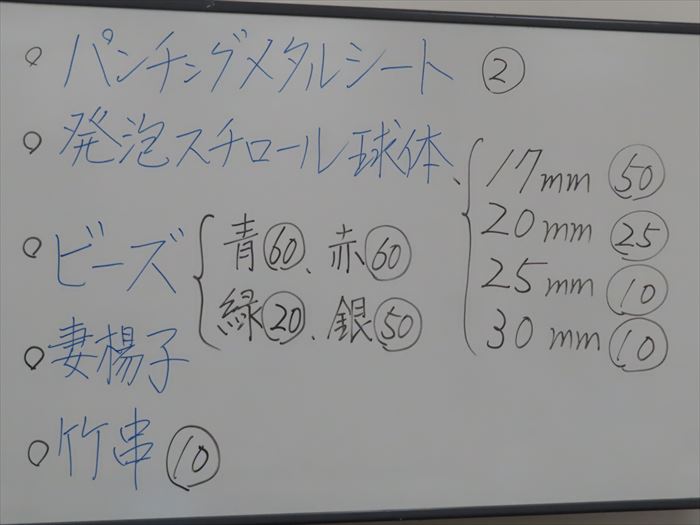 ○ パンチングメタルシート ②
○ 発泡スチロール球体、{ 17mm ㊿
20mm ㉕
25mm ⑩
30mm ⑩
○ ビーズ { 青(60)、赤(60)
緑⑳、銀㊿
○ 妻楊子
○ 竹串 ⑩